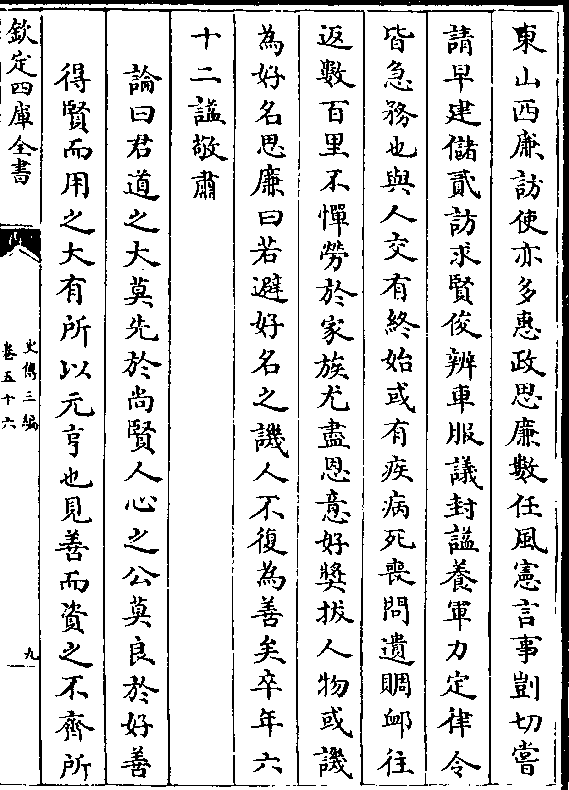 東山西廉訪使亦多惠政思廉數任風憲言事剴切嘗
請早建儲貳訪求賢俊辨車服議封諡養軍力定律令
皆急務也與人交有終始或有疾病死喪問遺賙卹往
返數百里不憚勞於家族尤盡恩意好獎拔人物或譏
為好名思廉曰若避好名之譏人不復為善矣卒年六
十二諡敬肅
論曰君道之大莫先於尚賢人心之公莫良於好善
得賢而用之大有所以元亨也見善而資之不齊所
欽定四庫全書
史傳三編
卷五十六
九